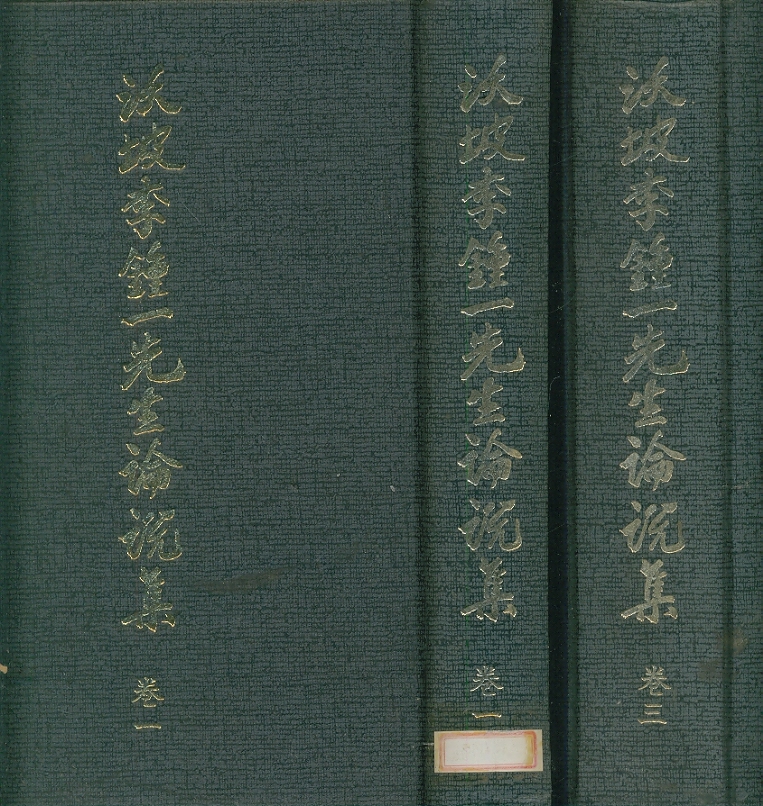 沃坡李鍾一先生論說集 卷一
沃坡李鍾一先生論說集 卷一
沃坡李鍾一先生論說集 卷三